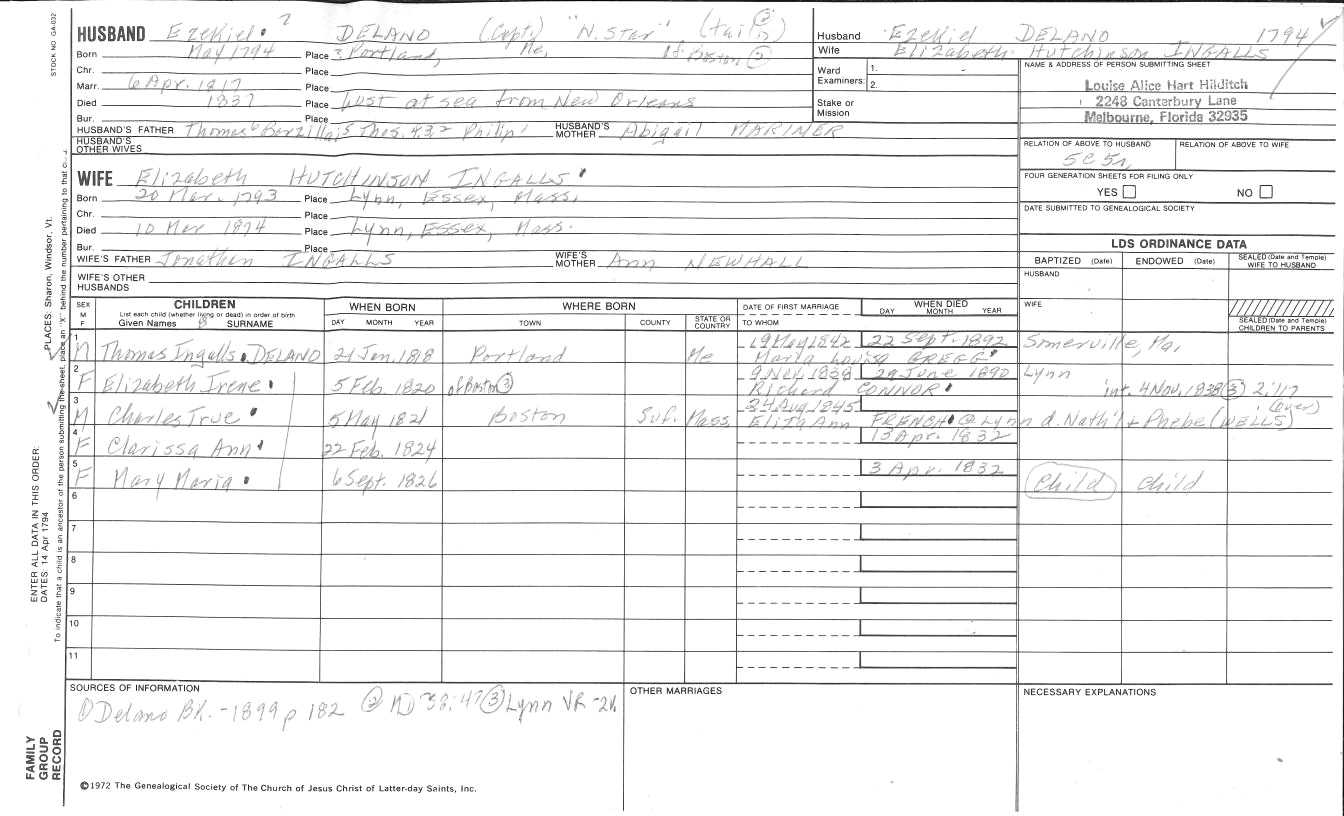 STOCK NO GA-032
HUSBAND Ezekiel DELANO (Capt.) "N. Star"
Born May 1794 Place Portland, Me,
Chr. Place
Marr. 6 Apr. 1817 Place
Died 1837 Place Lust at sea from New Orleans
Bur. Place
HUSBAND'S FATHER Thomas HUSBAND'S MOTHER Abigail MARINER
HUSBAND'S OTHER WIVES
WIFE Elizabeth HUTCHINSON INGALLS
Born 20 Mar. 1793 Place Lynn, Essex, Mass.
Chr. Place
Died 10 Mar 1874 Place Lynn, Essex, Mass.
Bur. Place
WIFE'S FATHER Jonathan INGALLS WIFE'S MOTHER Ann NEWHALL
WIFE'S OTHER HUSBANDS
Husband Ezekiel DELANO 1794
Wife Elizabeth Hutchinson INGALLS
Ward Examiners: 1. 2.
Stake or Mission
NAME & ADDRESS OF PERSON SUBMITTING SHEET
Louise Alice Hart Hilditch
2248 Canterbury Lane
Melbourne, Florida 32935
RELATION OF ABOVE TO HUSBAND RELATION OF ABOVE TO WIFE
5C5r
FOUR GENERATION SHEETS FOR FILING ONLY
YES NO
DATE SUBMITTED TO GENEALOGICAL SOCIETY
LDS ORDINANCE DATA
BAPTIZED (Date) ENDOWED (Date) SEALED (Date and Temple) WIFE TO HUSBAND
HUSBAND
WIFE
SEALED (Date and Temple) CHILDREN TO PARENTS
SEX M F
CHILDREN
List each child (whether living or dead) in order of birth
Given Names SURNAME
WHEN BORN
DAY MONTH YEAR
WHERE BORN
TOWN COUNTY STATE OR COUNTRY
DATE OF FIRST MARRIAGE
TO WHOM
WHEN DIED
DAY MONTH YEAR
1 M Thomas Ingalls DELANO 21 Jan. 1818 Portland Me 19 May 1842 22 Sept. 1892 Somerville, Ma,
Maria Louisa GREGG
2 F Elizabeth Irene 5 Feb. 1820 of Boston 3 9 Nov. 1838 29 June 1890 Lynn
Richard CONNOR int. 4 Nov. 1838 3 2:117
3 M Charles True 5 May 1821 Boston Suf. Mass 24 Aug 1845 (over)
Eliza Ann FRENCH @ Lynn d. Nath'l + Phebe (WELLS)
4 F Clarissa Ann 22 Feb. 1824 13 Apr. 1832
5 F Mary Maria 6 Sept. 1826 3 Apr. 1832 Child Child
6
7
8
9
10
11
SOURCES OF INFORMATION
1 Delano Bk. - 1899 p 182 2 MD 38:47 3 Lynn VR - 2
OTHER MARRIAGES
NECESSARY EXPLANATIONS
©1972 The Genealogical Society of The Church of Jesus Christ of Latter-day Saints, Inc.
FAMILY GROUP RECORD
ENTER ALL DATA IN THIS ORDER:
DATES: 14 Apr 1794
PLACES: Sharon, Windsor, Vt.
To indicate that a child is an ancestor of the person submitting the sheet, place an "X" behind the number pertaining to that